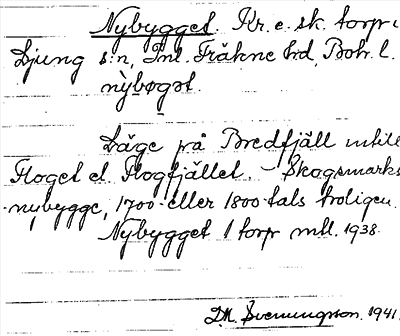 Nybygget. Kr. e. sk. torp i
Ljung s:n, Inl. Fräkne hd, Boh. l.
nỳbøgət.
Läge på Bredfjäll intill
Floget el. Flogfjället. - Skogsmarks-
nybygge, 1700- eller 1800-tals troligen.
Nybygget 1 torp mtl. 1938.
D.A. Svenungson. 1941.